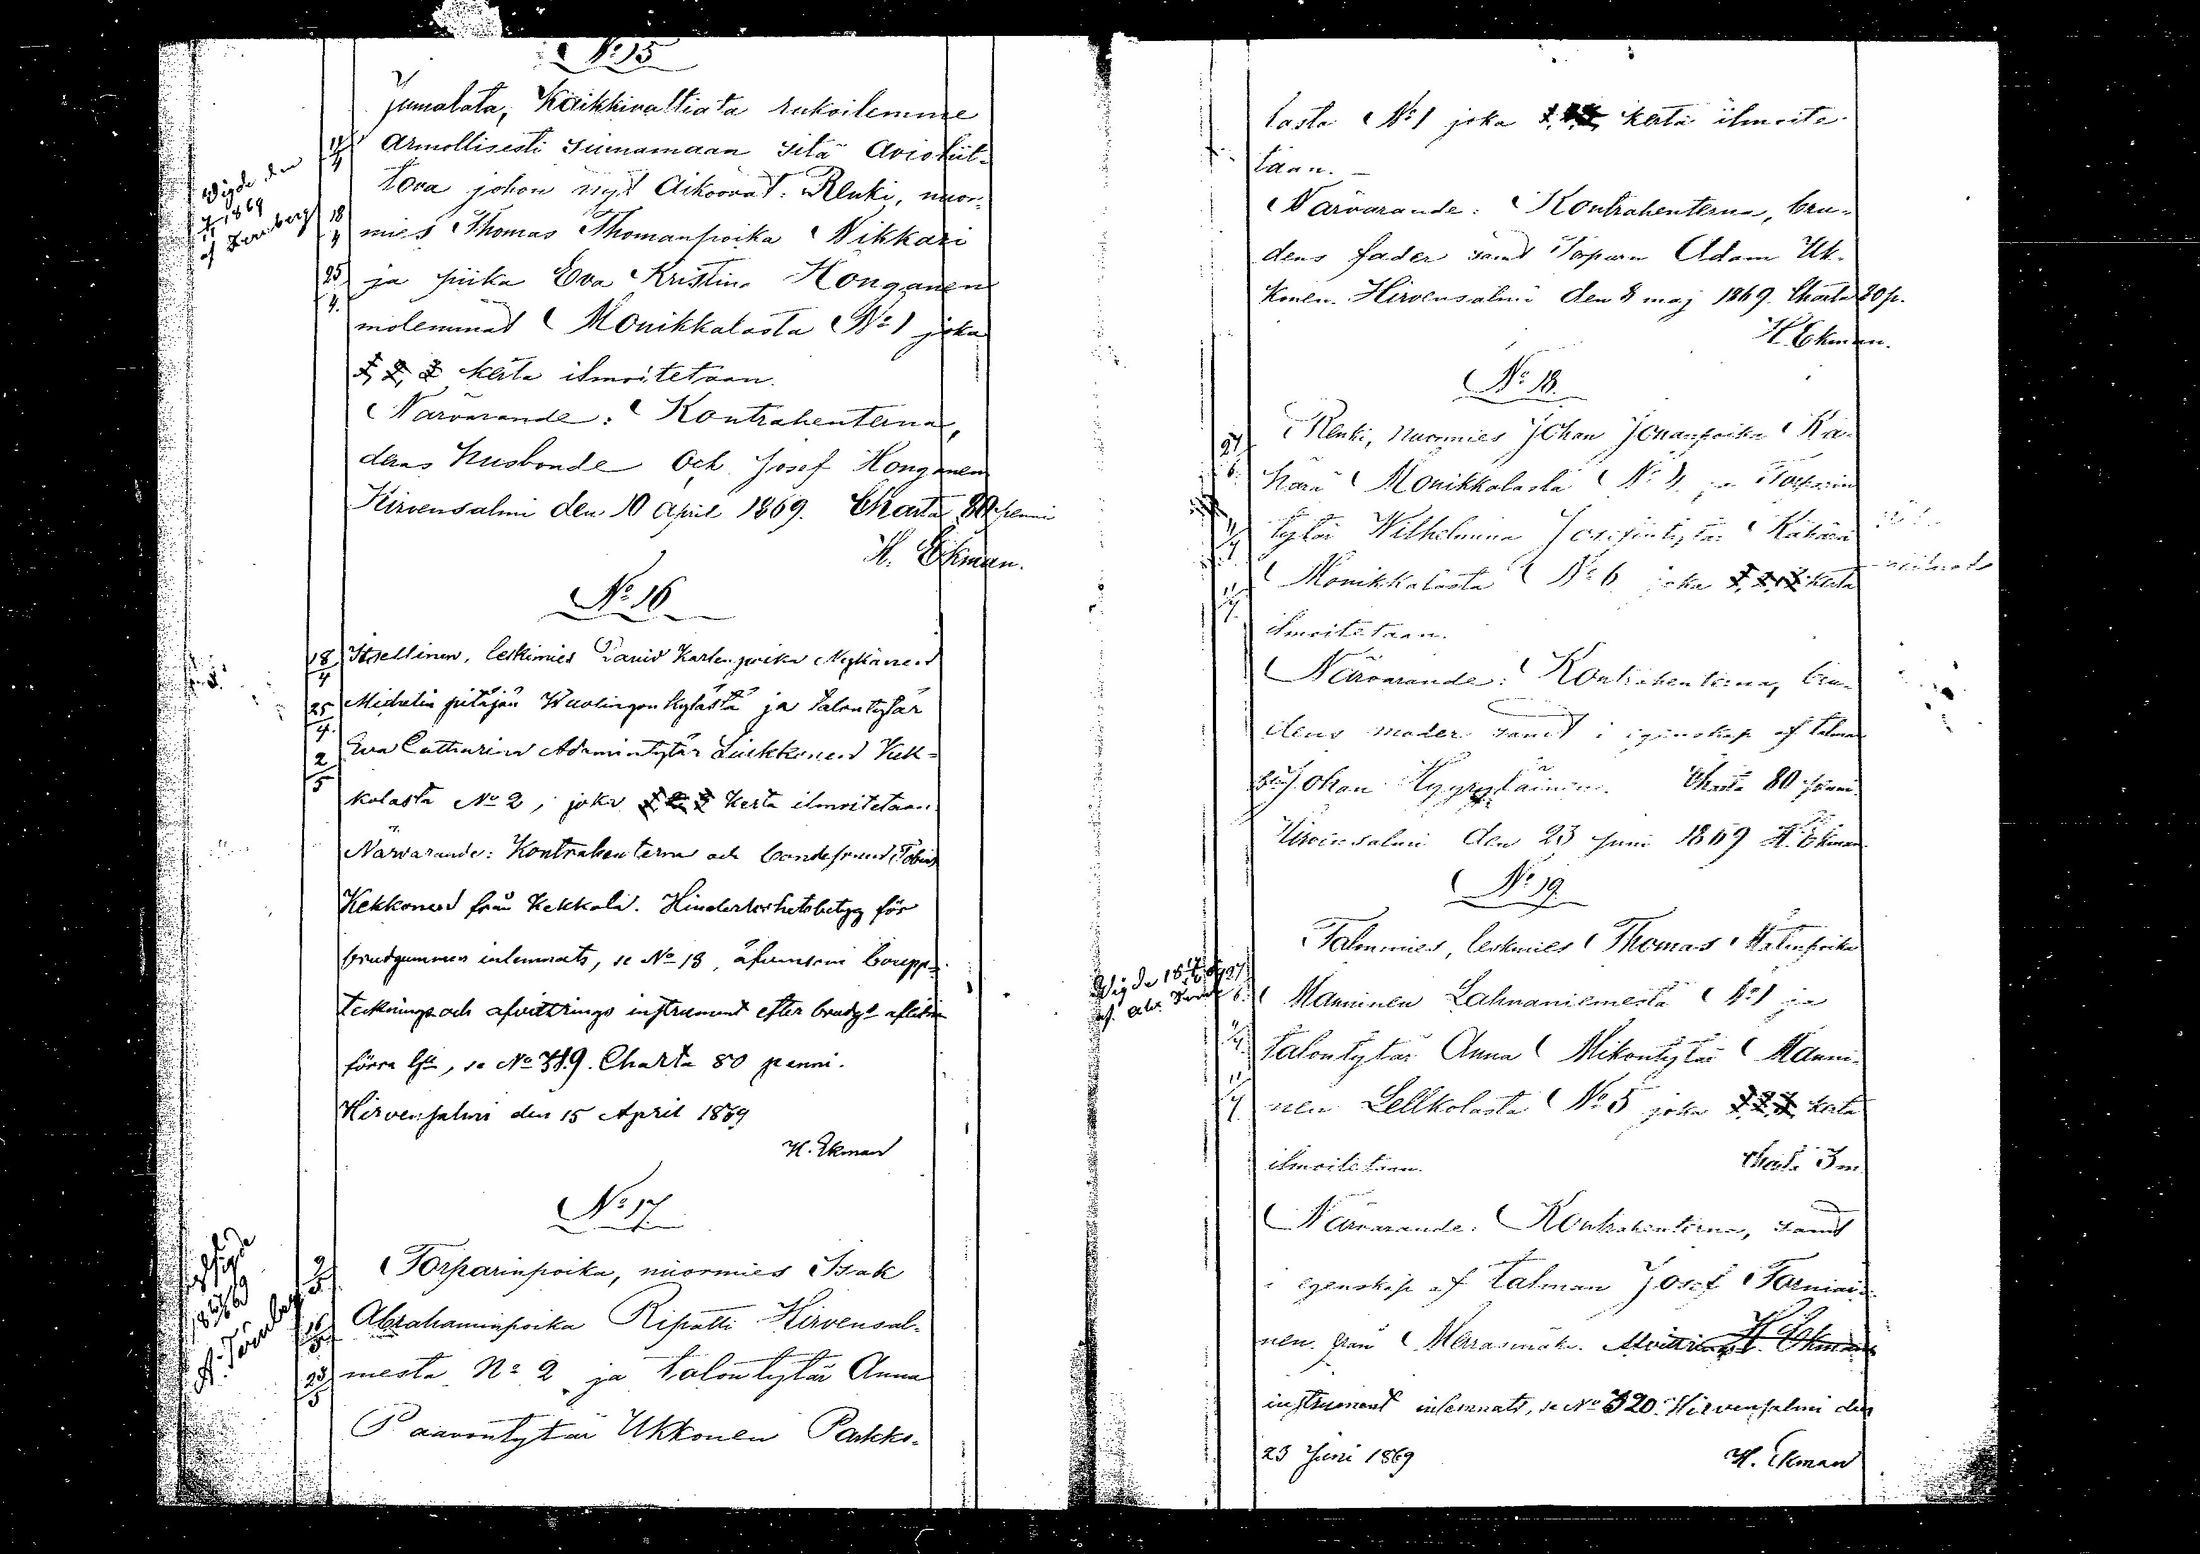 No 15
Jumalata, Kaikkivaltiata rukoilemme
11/4 armollisesti siunamaan sitä aviokiit-
Wigde den
1869
af Ternberg
tova johon nyt aikoovat: Renki, nuor-
18/4 mies Thomas Thomanpoika Nikkari
25/4 ja piika Eva Kristina Honganen
molemmat Monikkalasta No 1 joka
1, 2, 3 kerta ilmoitetaan.
Närvarande: Kontrahenterna,
deras husbonde och Josef Honganen
Hirvensalmi den 10 April 1869. Charta 80 penni
H. Ekman.
No 16
18/4 Itsellinen, leskimies David Karlenpoika Nykänen
25/4 Michelin pitäjän Wuolingon kylästä ja talontytär
2/5 Eva Catharina Adamintytär Liukkonen Kek-
kolasta No 2, joka 1 2 3 kerta ilmoitetaan.
Närvarande: Kontrahenterna och bondefrund Tobias
Kekkonen från Kekkola. Hinderlöshetsbetyg för
brudgummen inlemnats, se No 13, äfvensom boupp-
tecknings och afvittrings instrument efter brudgs aflidna
förra hu, se No 319. Charta 80 penni.
Hirvensalmi den 15 April 1869
H. Ekman
No 17
Wigde
1869
A. Törnberg
2/5 Torparinpoika, nuormies Isak
16/5 Abrahaminpoika Ripatti Hirvensal-
23/5 mesta No 2 ja talontytär Anna
Paavontytär Ukkonen Parkko-
lasta No 1 joka 1, 2, 3, kerta ilmoite-
taan. —
Närvarande: Kontrahenterna, bru-
dens fader samt Torparn Adam Uk-
konen. Hirvensalmi den 8 maj 1869. Charta 80 p.
H. Ekman.
No 18.
Renki, nuormies Johan Johanpoika Kä-
27/6 härä Monikkalasta No 4 ja Torparin
4/7 tytär Wilhelmina Josefintytär Kähärä
11/7 Monikkalasta No 6 joka 1, 2, 3 kerta
ilmoitetaan.
Närvarande: Kontrahenterna, bru-
dens moder samt i egenskap af talman
Johan Hyyryläinen. Charta 80 penni.
Hirvensalmi den 23 Juni 1869 H. Ekman
No 19.
Talonmies, leskimies Thomas Matinpoika
Wigde 18
27/6 Manninen Lahnaniemestä No 1 ja
4/7 talontytär Anna Mikontytär Manni-
11/7 nen Lellkolasta No 5 joka 1, 2, 3, kerta
ilmoitetaan. Charta 3 m.
Närvarande: Kontrahenterna, samt
i egenskap af talman Josef Tarniai-
nen från Marrasmäki. Afvittrings H. Ekman
instrument inlemnats, se No 320. Hirvensalmi den
23 Juni 1869 H. Ekman